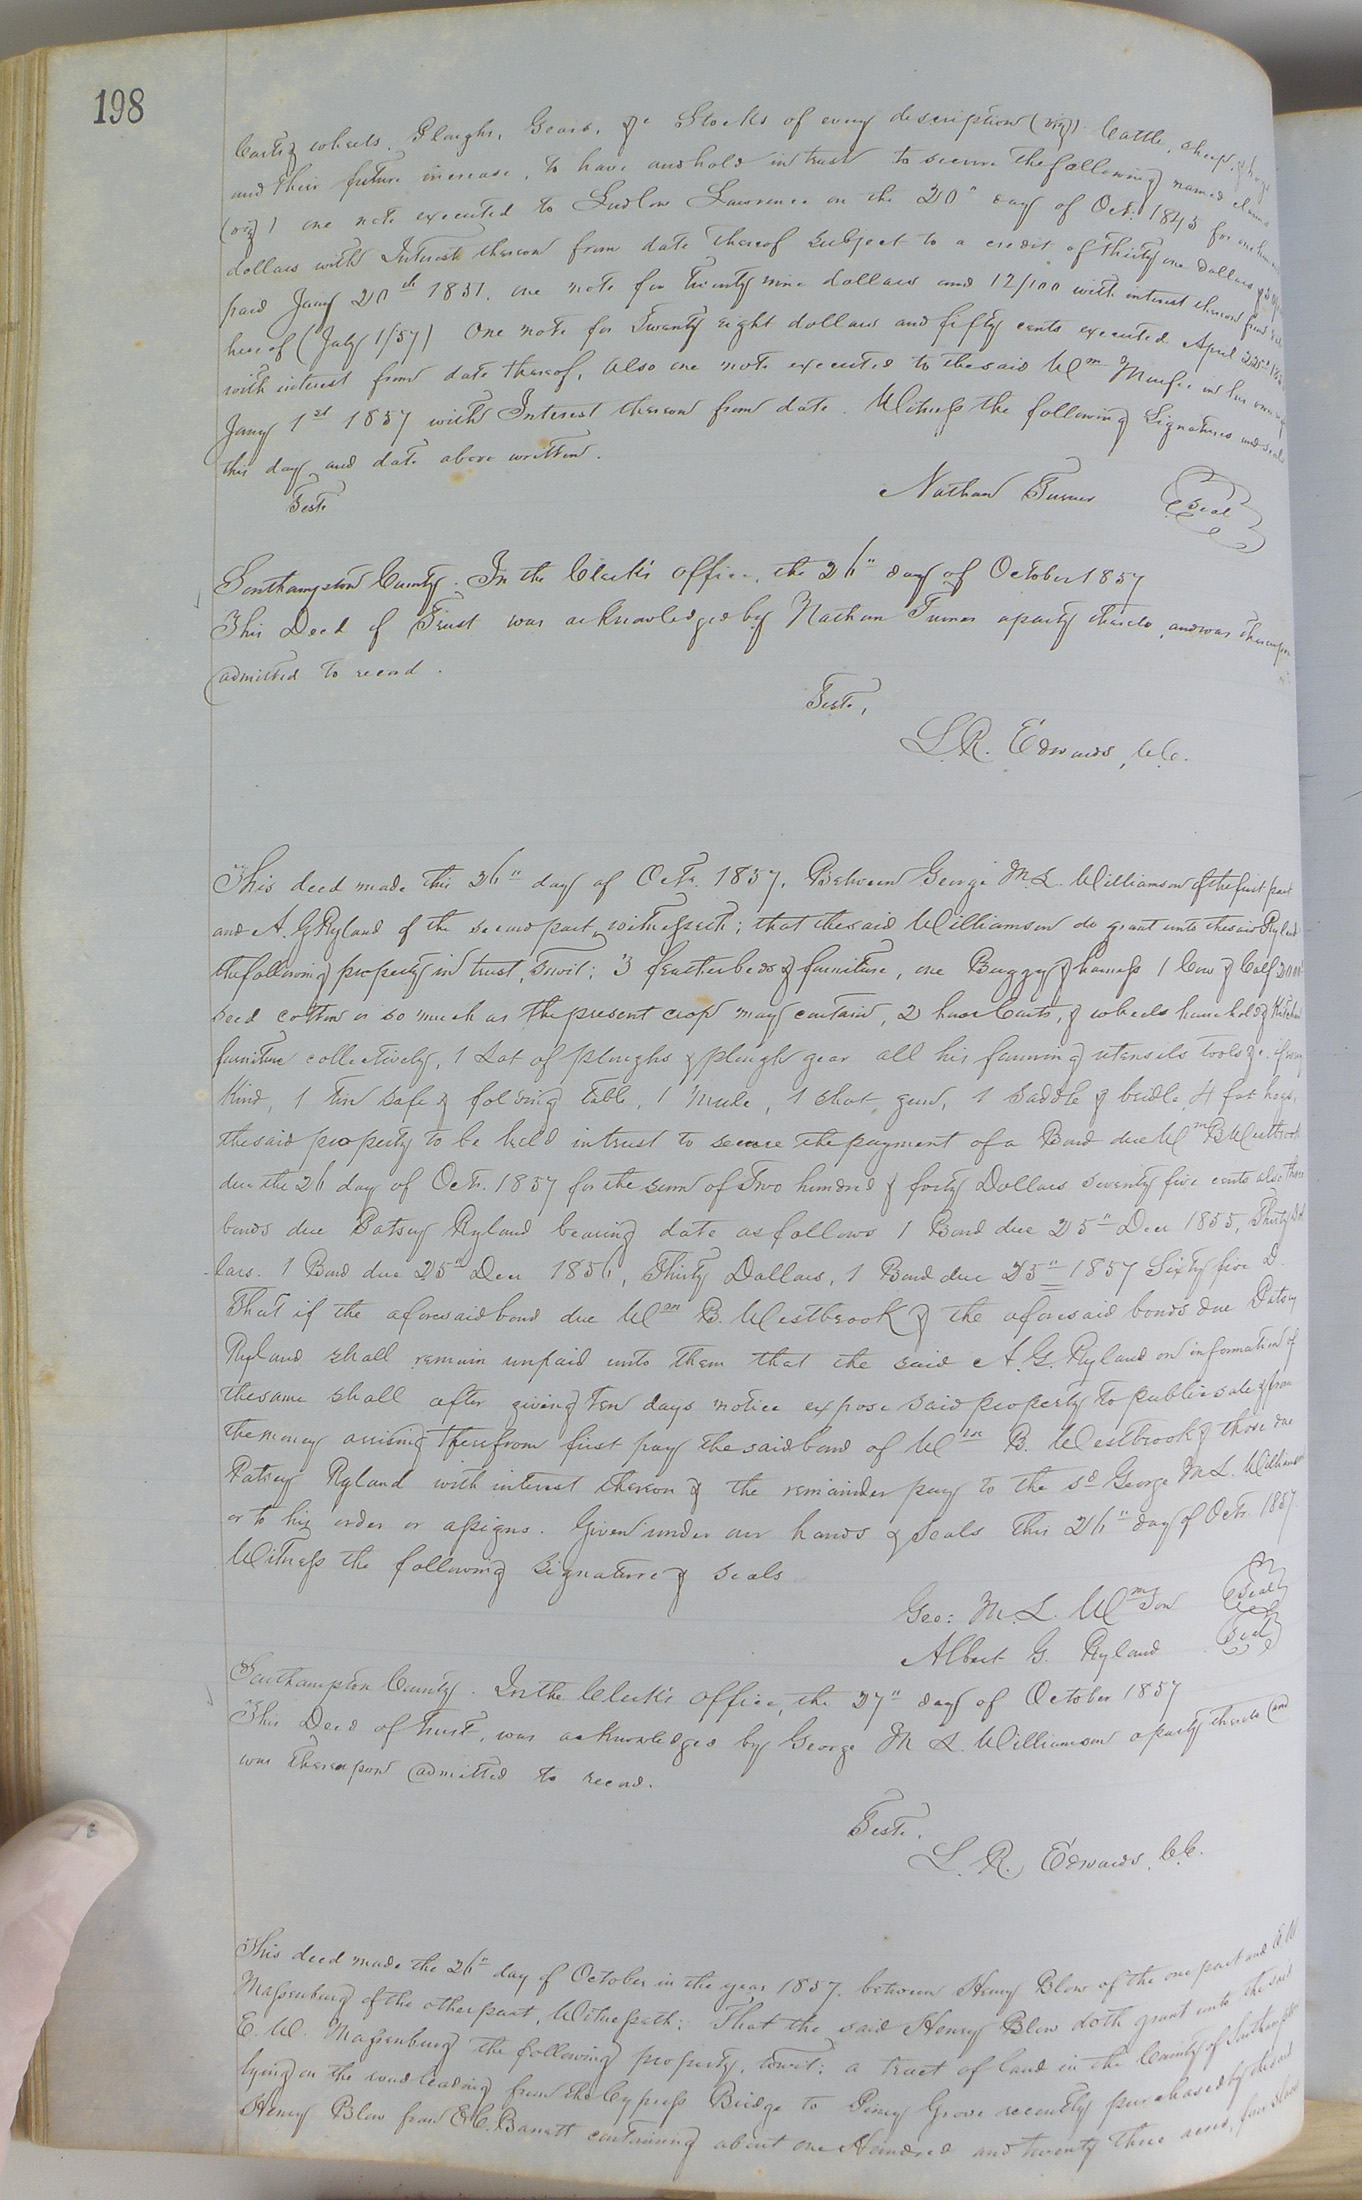 198
Carts & wheels, Ploughs, Gears, &c Stocks of every description (viz) Cattle, sheep, & hogs
and their future increase, to have and hold in trust to secure the following named claims
(viz) one note executed to Ludlow Lawrence on the 20" day of Oct. 1845 for one
dollars with Interest thereon from date thereof subject to a credit of thirty one Dollars
paid Jany 20th 1851. one note for twenty nine dollars and 12/100 with interest thereon from
hereof (July 1/57) One note for Twenty eight dollars and fifty cents executed April
with interest from date thereof, also one note executed to the said Wm in his own
Jany 1st 1857 with Interest thereon from date. Witness the following Signatures and seals
this day and date above written.
Teste
Nathan Turner Seal
Southampton County. In the Clerk's office, the 26" day of October 1857
This Deed of Trust was acknowledged by Nathan Turner a party thereto, and was thereupon
admitted to record.
Teste,
L.R. Edwards, C.C.
This deed made this 26" day of Octr. 1857, Between George M. L. Williamson of the first part
and A. G Ryland of the second part, witnesseth; that the said Williamson do grant unto the said Ryland
the following property in trust, towit; 3 featherbeds & furniture, one Buggy & harness 1 Cow & Calf
seed cotton or so much as the present crop may contain, 2 horse Carts, & wheels household & Kitchen
furniture collectively, 1 Lot of ploughs & plough gear all his farming utensils tools &c. of every
Kind, 1 tin safe & folding table, 1 mule, 1 shot gun, 1 Saddle & bridle, 4 fat hogs,
the said property to be held in trust to secure the payment of a Bond due Wm B Westbrook
due the 26 day of Octr. 1857 for the sum of Two hundred & forty Dollars seventy five cents also three
bonds due Patsey Ryland bearing date as follows 1 Bond due 25" Decr 1855, Thirty Dol
lars. 1 Bond due 25" Decr 1856, Thirty Dollars, 1 Bond due 25" 1857 Sixty five D.
That if the aforesaid bond due Wm B. Westbrook & the aforesaid bonds due Patsey
Ryland shall remain unpaid unto them that the said A. G. Ryland on information of
the same shall after giving ten days notice expose said property to public sale & from
the money arising therefrom first pay the said bond of Wm B. Westbrook & those due
Patsey Ryland with interest thereon & the remainder pay to the sd George M L. Williamson
or to his order or assigns. Given under our hands & seals this 26" day of Octr. 1857.
Witness the following signature & seals
Geo: M. L. Wmson Seal
Albert G. Ryland Seal
Southampton County. In the Clerk's office, the 27" day of October 1857
This Deed of Trust, was acknowledged by George M L. Williamson a party thereto and
was thereupon admitted to record.
Teste.
L. R. Edwards, C.C.
This deed made the 26" day of October in the year 1857. between Henry Blow of the one part and E. W
Massenburg of the other part, Witnesseth: That the said Henry Blow doth grant unto the said
E. W. Massenburg the following property, towit: a tract of land in the County of Southampton
lying on the road leading from the Cypress Bridge to Piney Grove recently purchased by the said
Henry Blow from E C. Barrett containing about one Hundred and twenty three acres, four